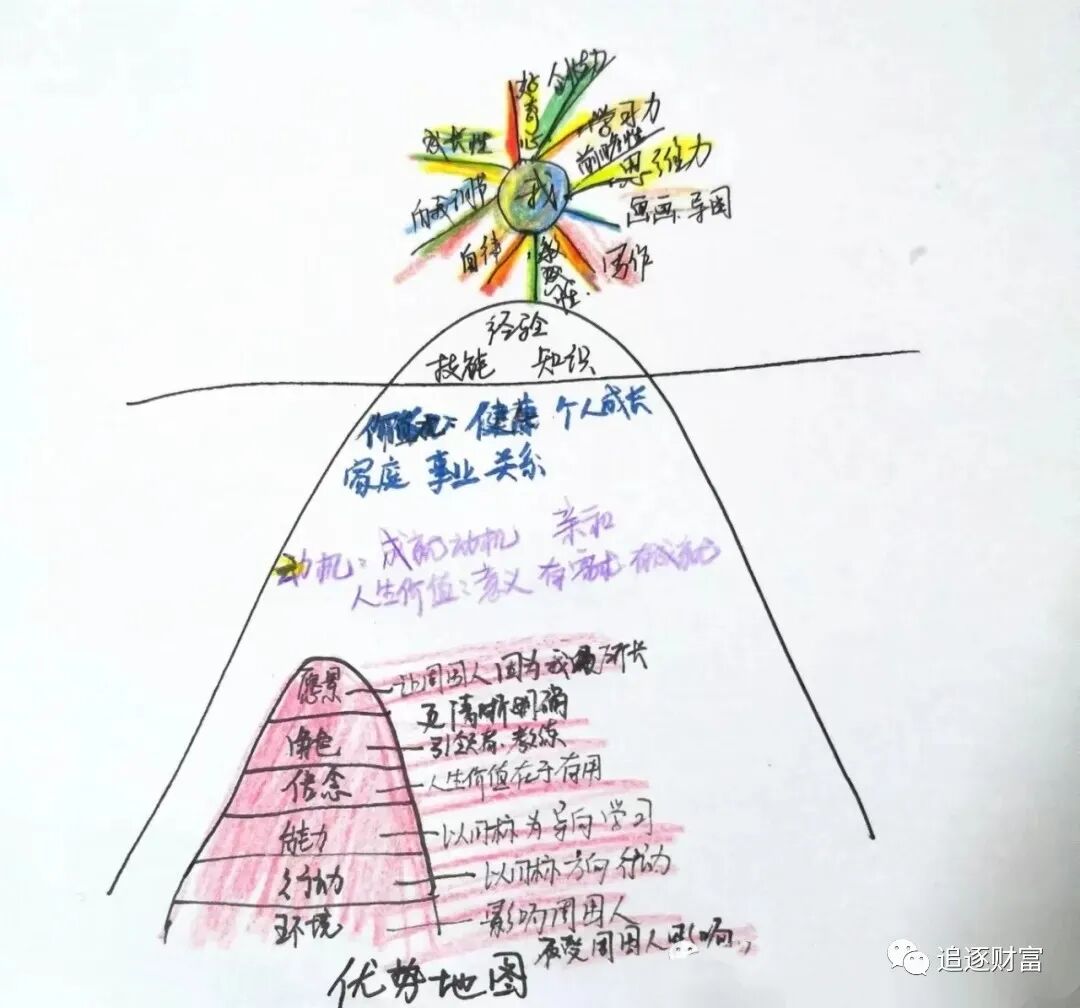 好奇心
创造力
学习力
前瞻性
思维力
画画、导图
写作
敏感性
自律
自我调节
成长性
我
经验
技能 知识
价值观：健康 个人成长
家庭 事业 关系
动机：成就动机 亲和
人生价值：意义 有需求 有成就
愿景 让周围人因为我
更清晰明确
角色 引领者 教练
信念 人生价值在于有用
能力 以目标为导向学习
行动 以目标方向行动
环境 影响周围人
不受周围人影响
优势地图
追逐财富